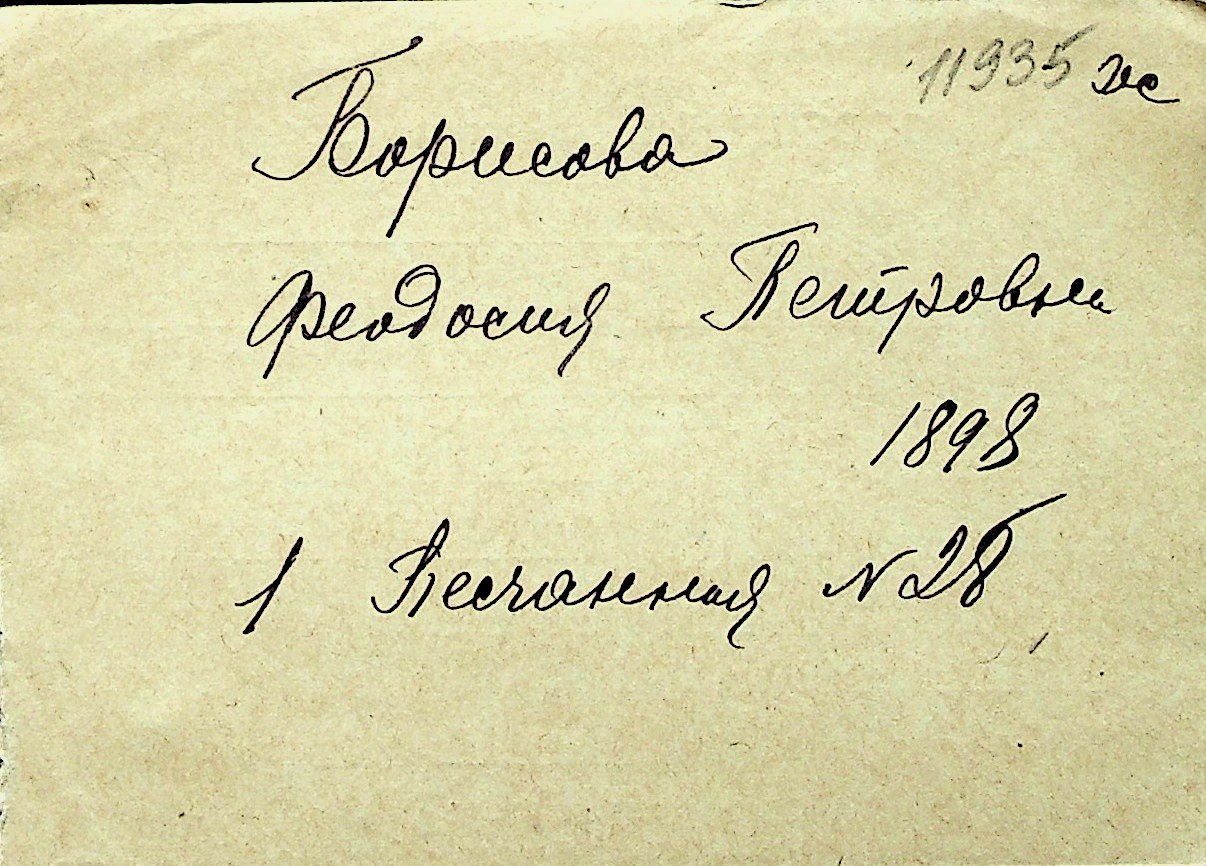 11935 ж
Борисова
Феодосия Петровна
1898
1 Песчанная № 28